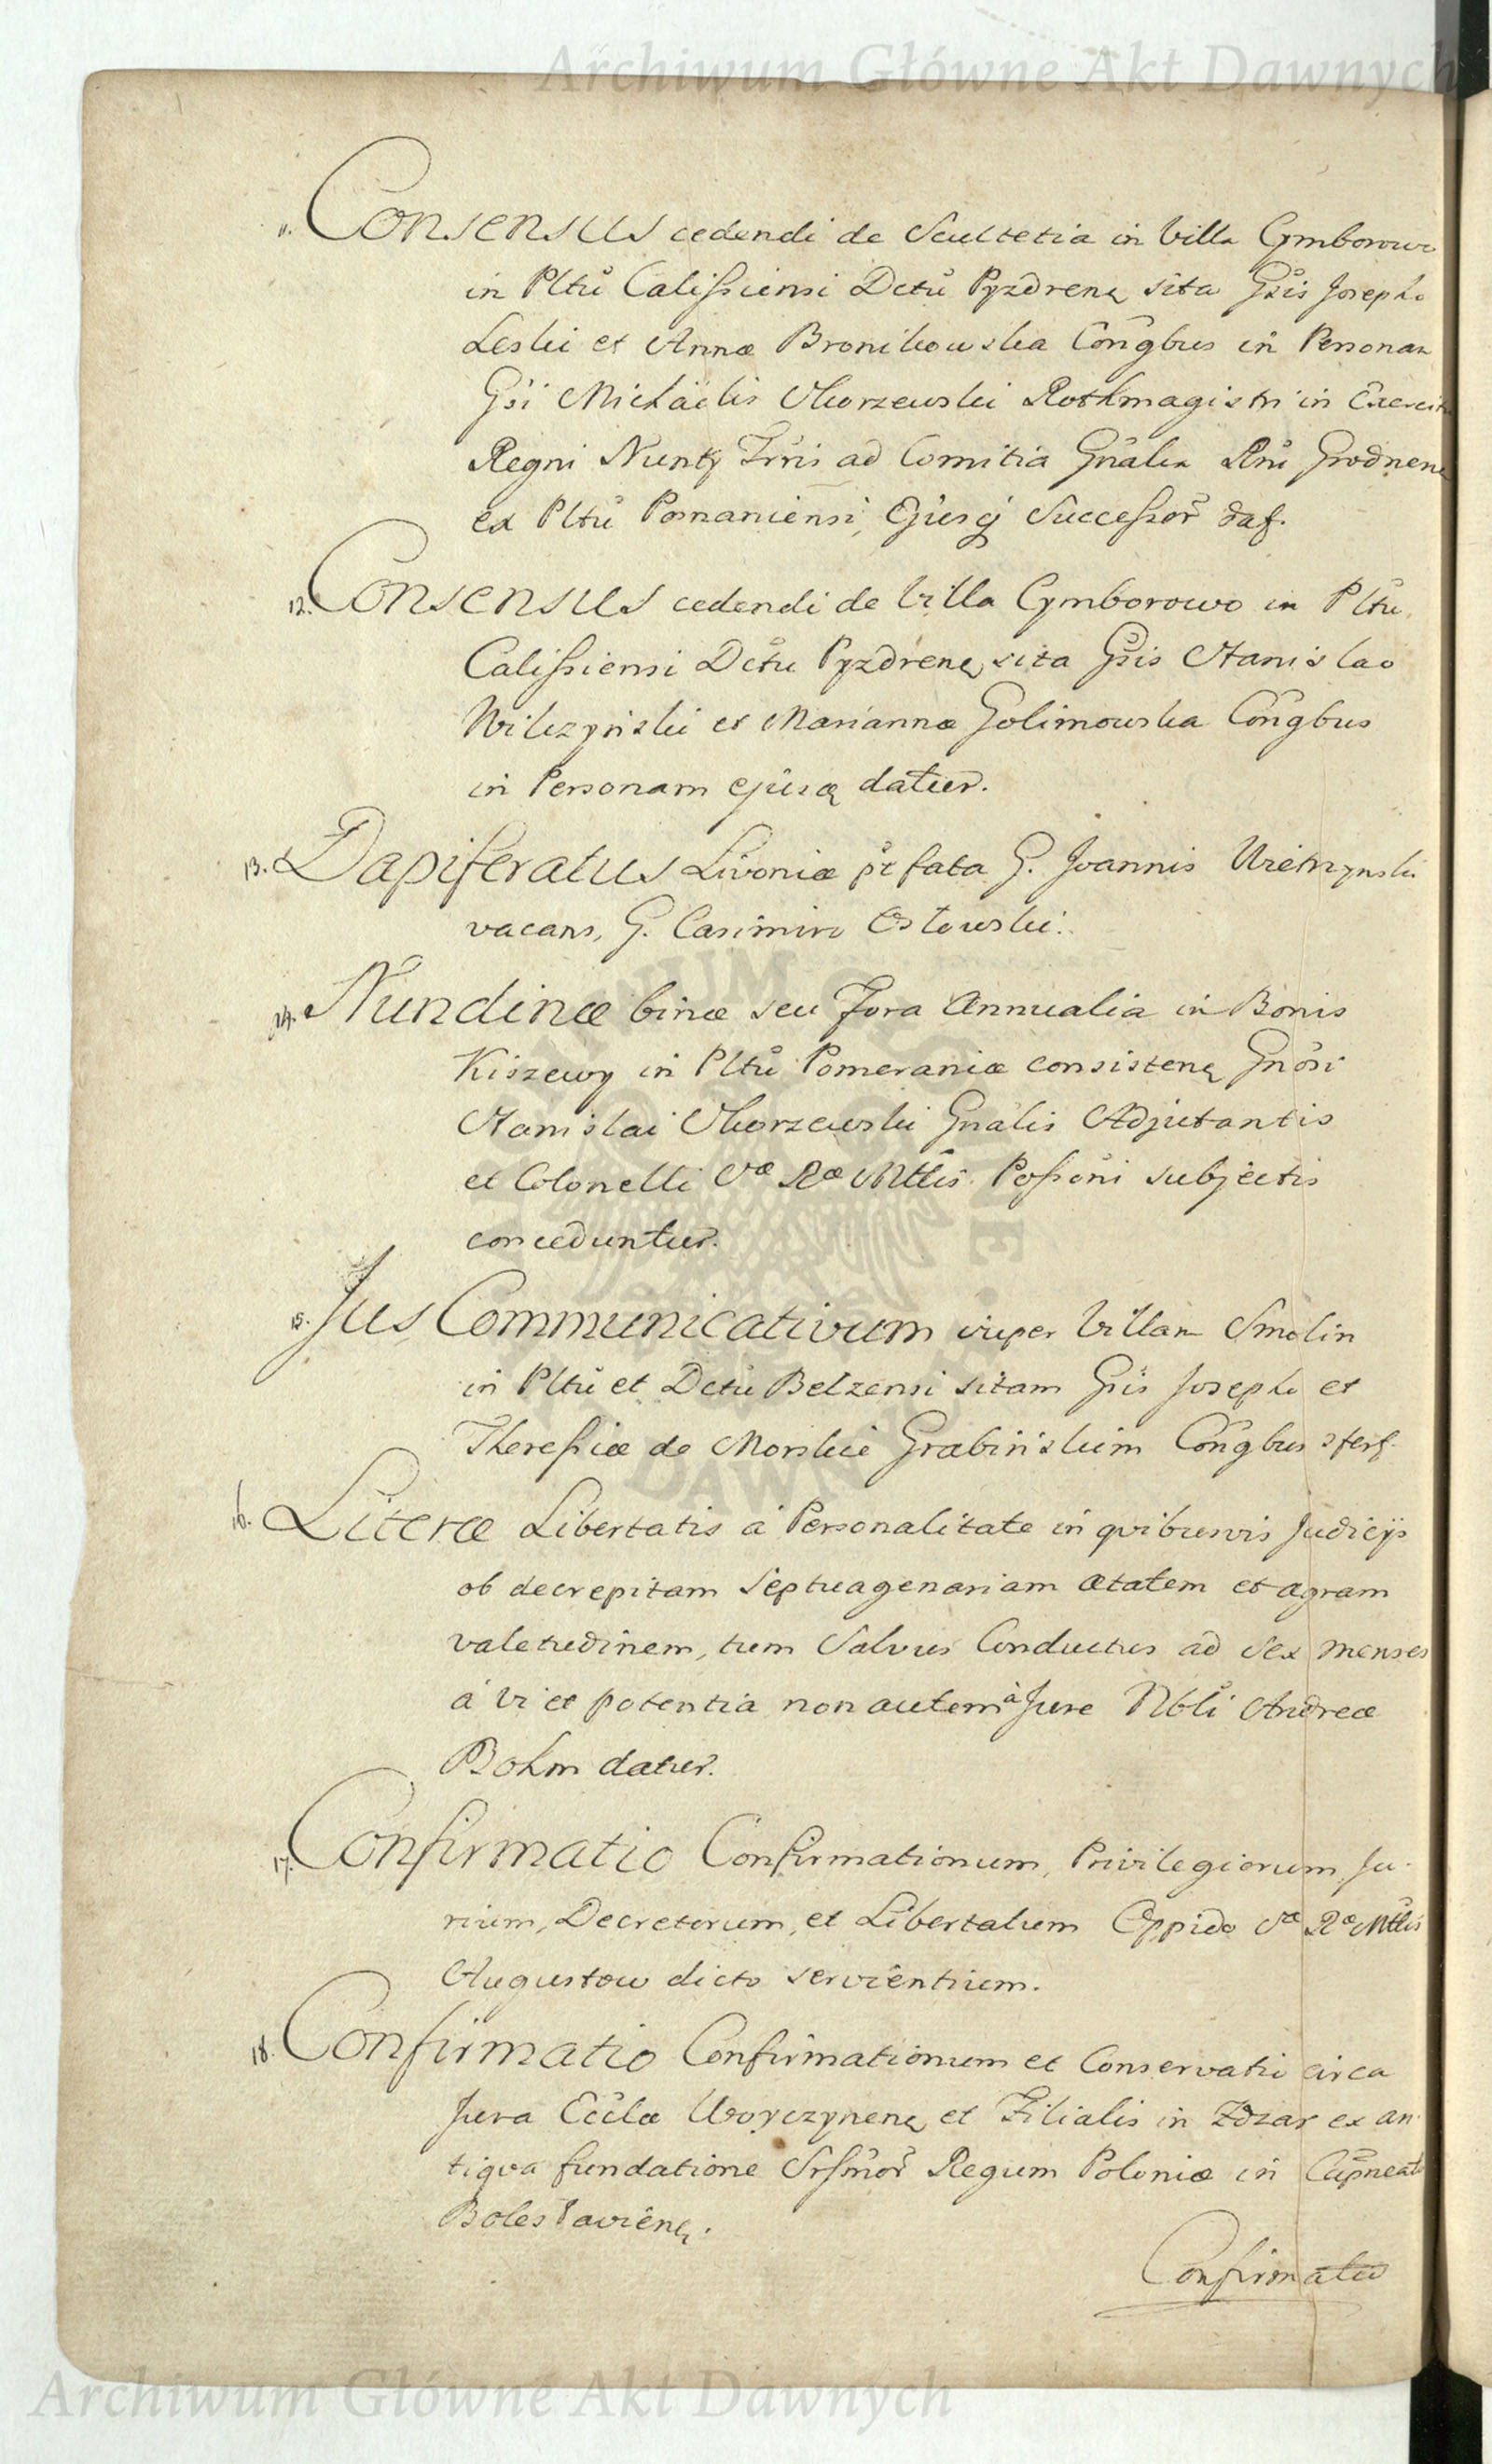 Archiwum Główne Akt Dawnych
11. Consensus cedendi de Scultetia in Villa Cymborowo
in Pltu Calissiensi Dctu Pyzdren. sita Gsis Josepho
Leski et Annæ Bronikowska Congbus in Personam
Gsi Michaelis Skorzewski Rothmagistri in Exercitu
Regni Nuntÿ Trris ad Comitia Gnalia Rni Grodnen.
ex Pltu Posnaniensi, Ejusq Successor daf.
12. Consensus cedendi de Villa Cymborowo in Pltu
Calissiensi Dctu Pyzdren. sita Gsis Stanislao
Wilczyński et Mariannæ Golimowska Congbus
in Personam ejusd. datur.
13. Dapiferatus Livoniæ pt fata G. Joannis
vacans, G. Casimiro Ostowski.
14. Nundinæ binæ seu Fora Annualia in Bonis
Kiszewy in Pltu Pomeraniæ consisten. Gnosi
Stanislai Skorzewski Gnalis Adjutantis
et Colonelli Sæ Ræ Mttis Possoni subjectis
conceduntur.
15. Jus Communicativum super Villam Smolin
in Pltu et Dctu Belzensi sitam Gsis Josepho et
Theressiæ de Morskie Grabińskim Congbus sferf.
16. Literæ Libertatis a Personalitate in qvibusvis Judicÿs
ob decrepitam Septuagenariam ætatem et ægram
valetudinem, tum Salvus Conductus ad sex menses
á vi et potentia non autem à Jure Nbli Andreæ
Bohm datur.
17. Confirmatio Confirmationum, Privilegiorum, Ju-
rium, Decretorum, et Libertatum Oppido Sæ Ræ Mttis
Augustow dicto servientium.
18. Confirmatio Confirmationum et Conservatio circa
Jura Ecclæ Woyczynen. et Filialis in Zdzar ex an-
tiqva fundatione Srsmor Regum Poloniæ in Capneatu
Bolesłavien.
Confirmatio
Archiwum Główne Akt Dawnych